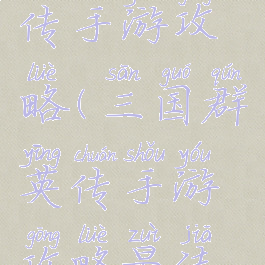 传手游攻
lüè sān guó qún
略(三国群
yīng chuán shǒu yóu
英传手游
gōng lüè zuì jiā
攻略最佳